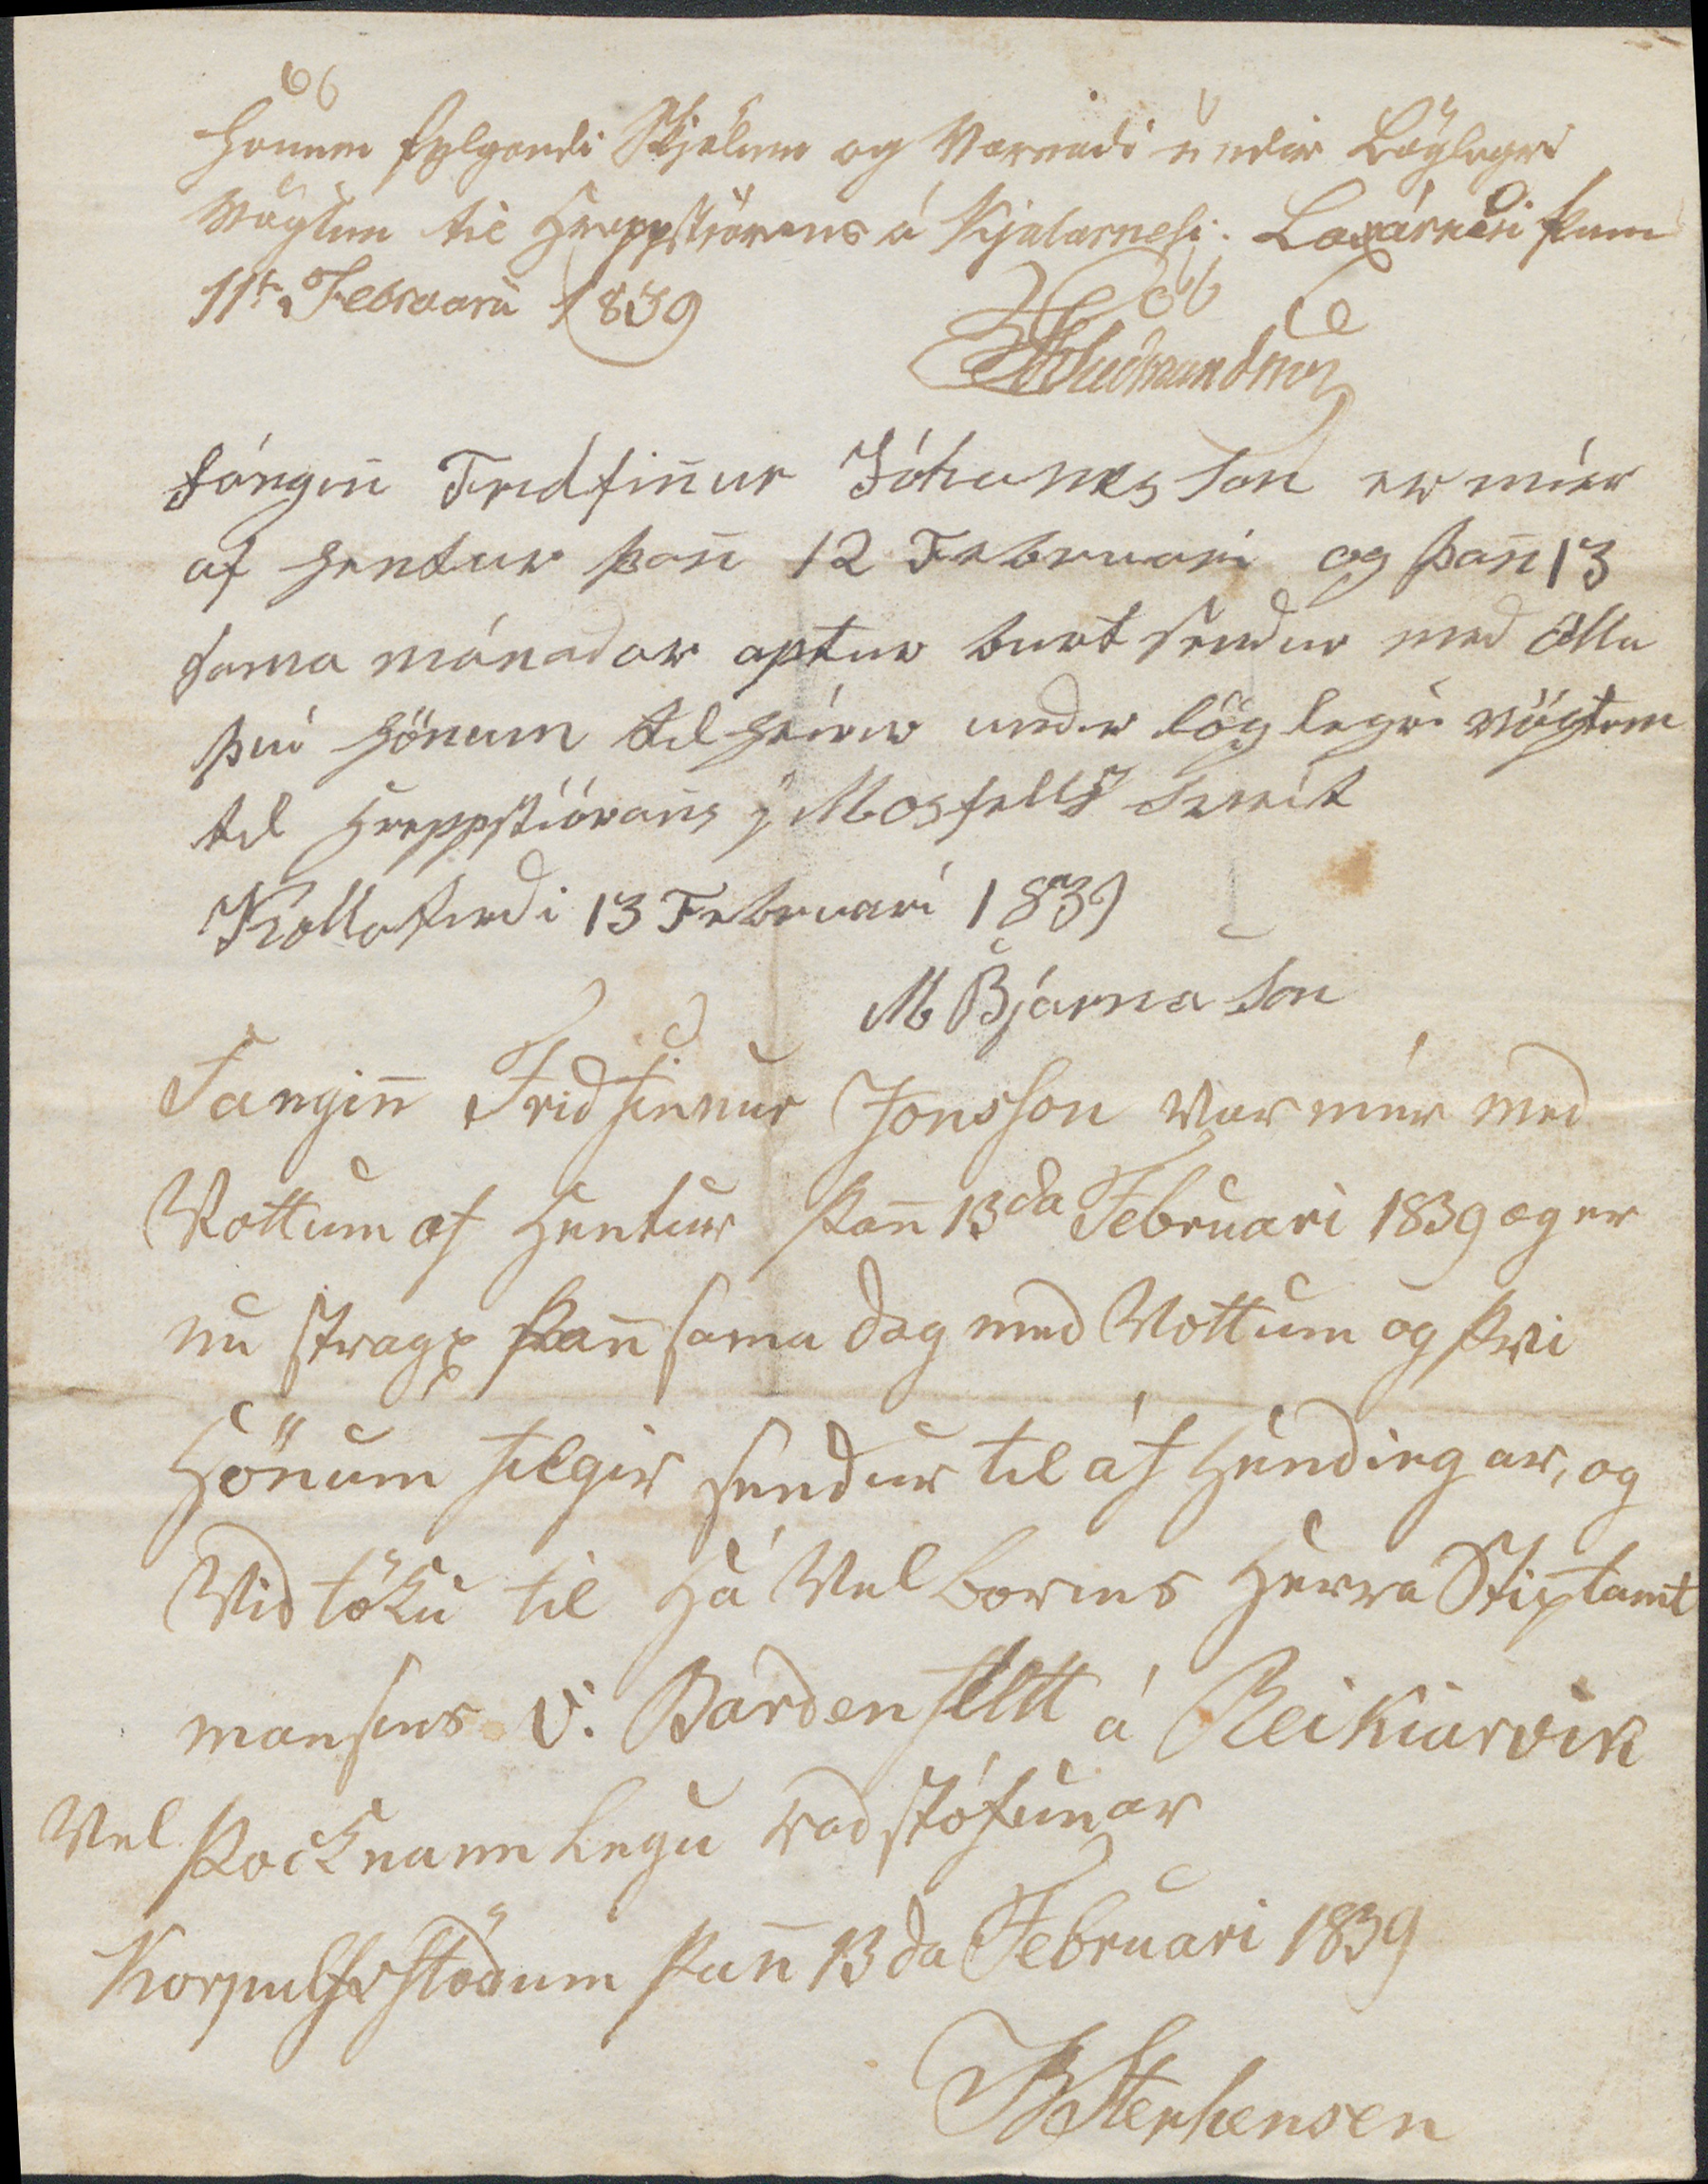 honum fylgandi Skjölum og Varnadi undir Löglegri
Vögtun til Hreppstjórans á Kjalarnesi. Laxárnesi þann
11t. Februarii 1839
Gudmundson
fánginn Fridfin̄ur Jóhannesson er mier
af hentur þan̄ 12 Februari og þan̄ 13
sama mánadar aptur burt sendur med öllu
þvi hönum tilheirir undir löglegri vögtun
til Hreppstiórans j Mosfells sveit
Kollafirdi 13 Februari 1839
M Bjarnason
Fangin̄ Fridfinnur Jonsson var mér med
Vottum af Hentur þan̄ 13da Februari 1839 og er
nu strags þan̄ sama dag med Vottum og þvi
Hönum filgir sendur til áf Hendingar, og
Vidtöku til Há Vel borins Herra Stiptamt
mansins v. Bardenfleth á Reikiarvik
Vel þocknannlegu radstöfunar
Korpulfsstödum þan̄ 13da Februari 1839
Stephensen